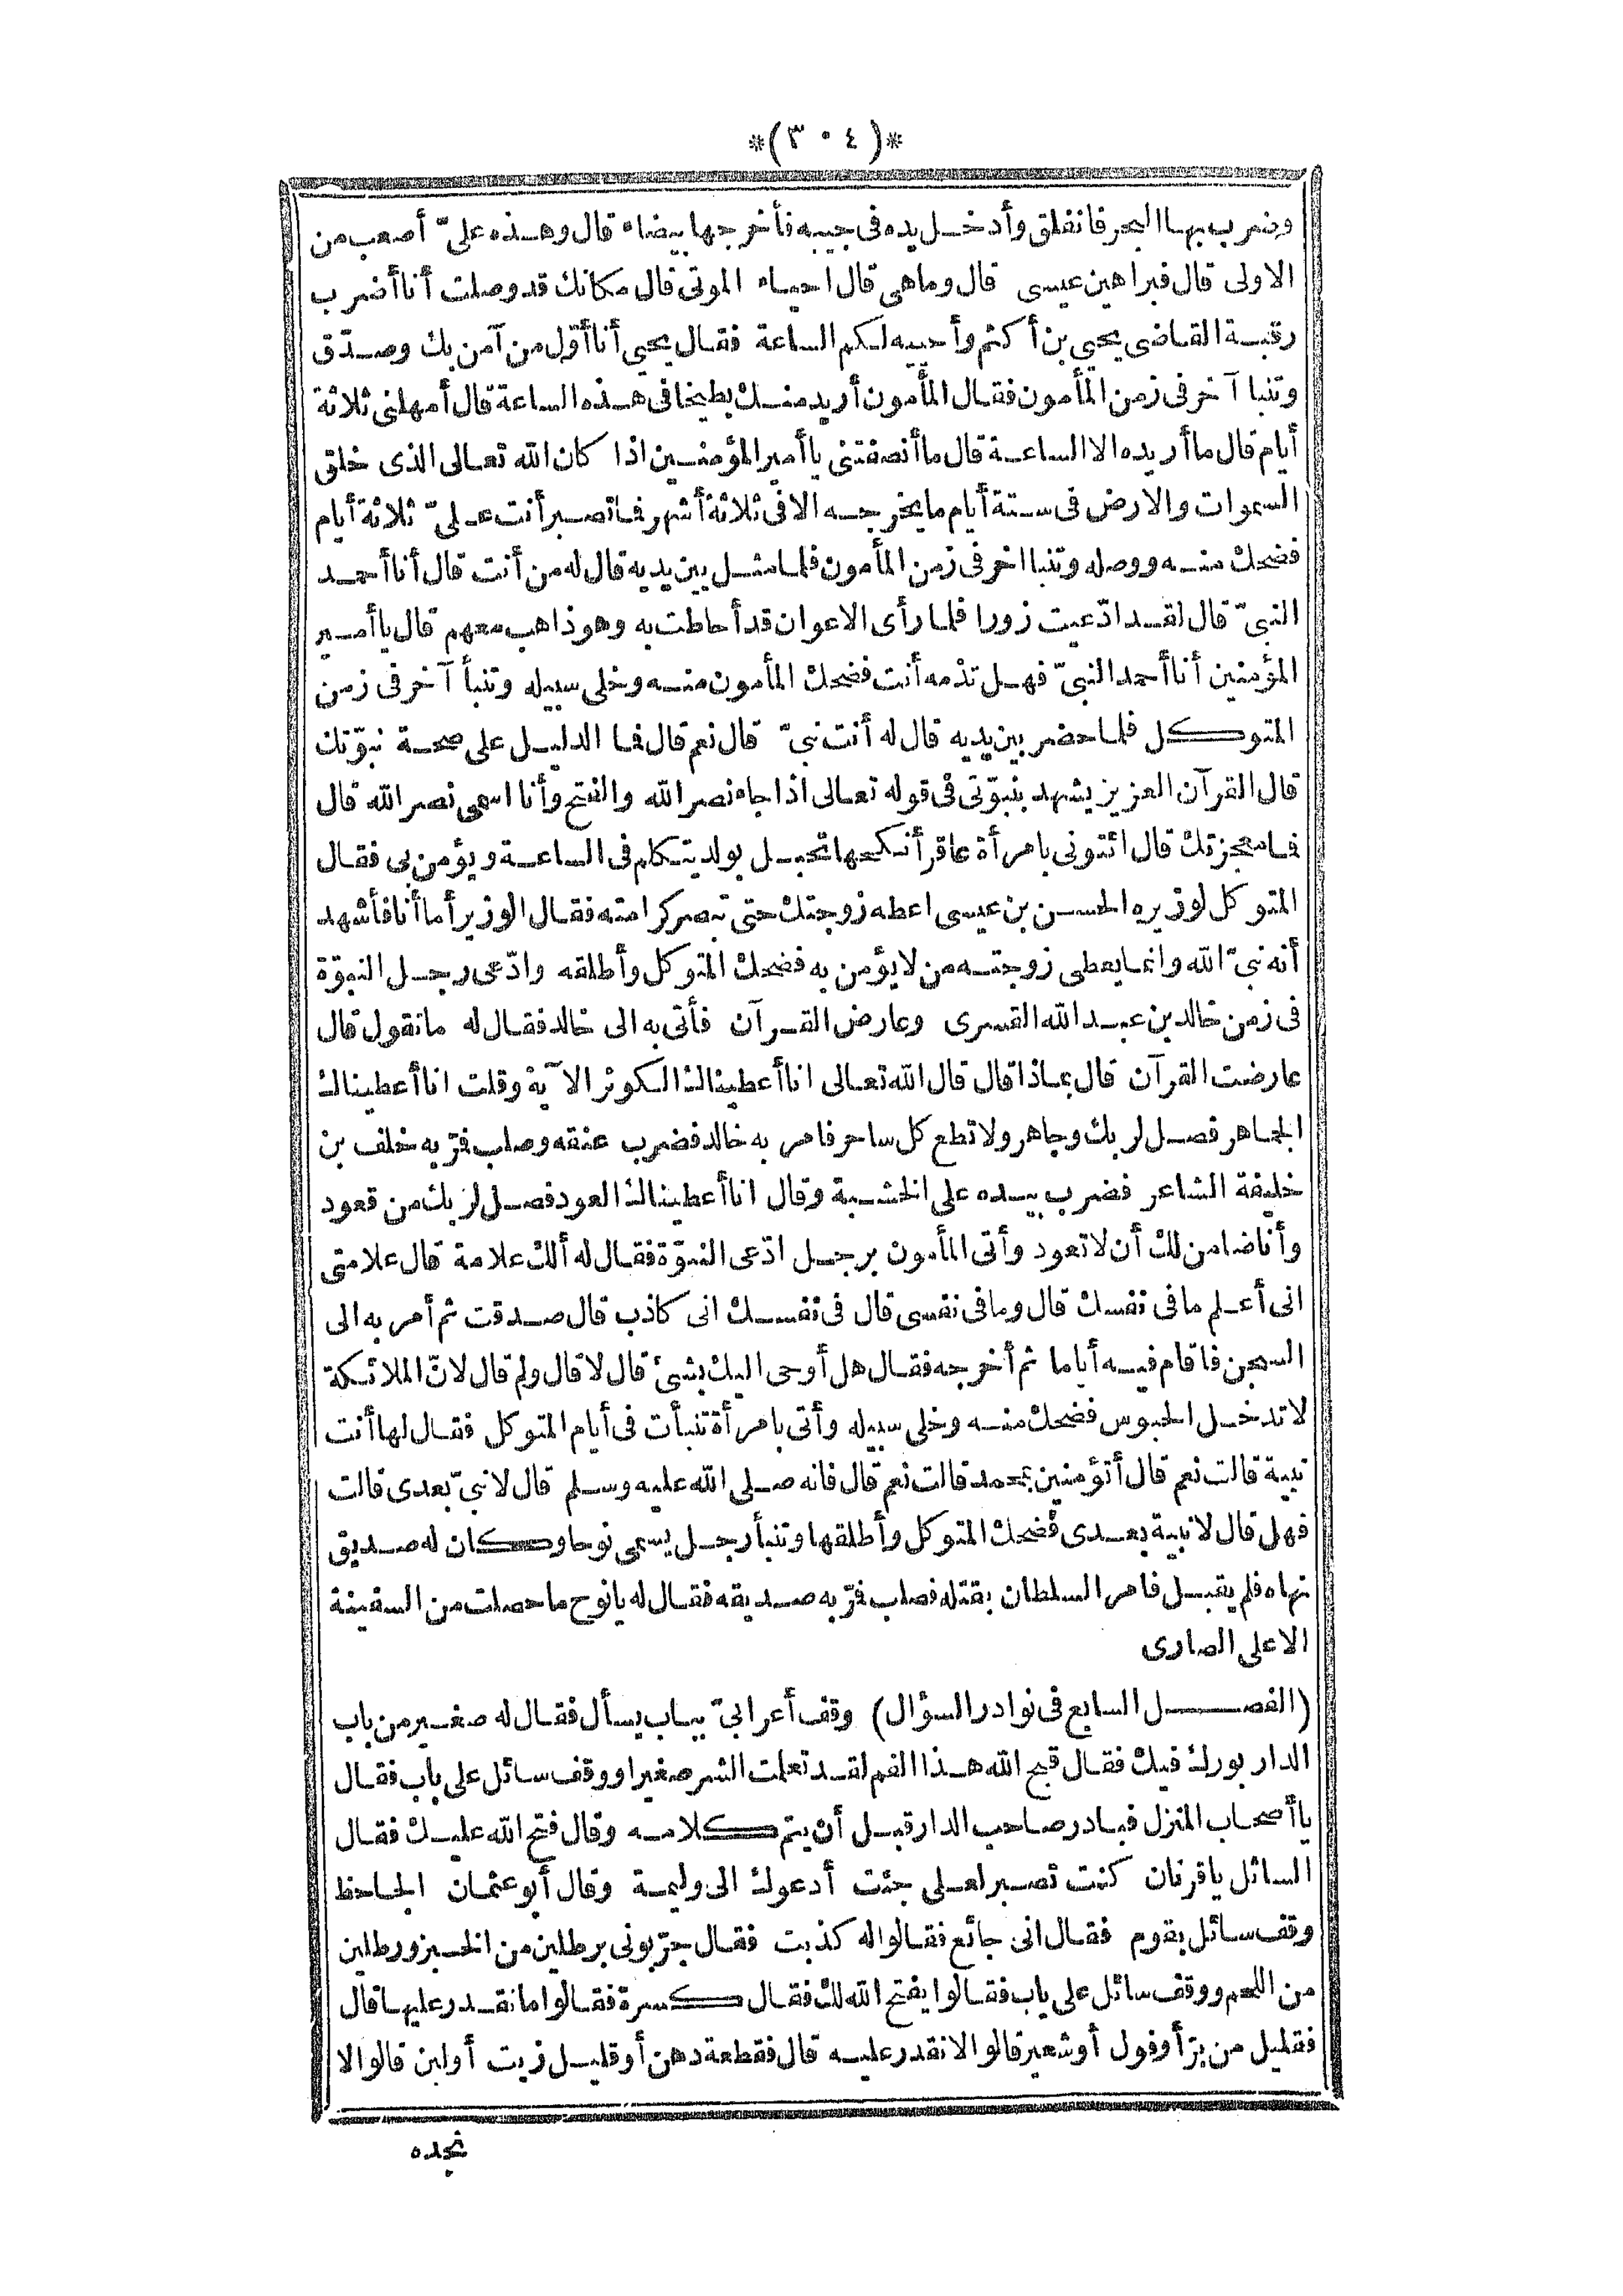 *(٣٠٤)*
وضرب بها البحر فانفلق وأدخل يده فى جيبه فأخرجها بيضاء قال وهذه علىّ أصعب من
الاولى قال فبراهين عيسى قال وما هى قال احياء الموتى قال مكانك قد وصلت أنا أضرب
رقبة القاضى يحيى بن أكثم وأحييه لكم الساعة فقال يحيى أنا أوّل من آمن بك وصدّق
وتنبا آخر فى زمن المأمون فقال المأمون أريد منك بطيخا فى هذه الساعة قال أمهلنى ثلاثة
أيام قال ما أريده الا الساعة قال ما أنصفتنى يا أمير المؤمنين اذا كان الله تعالى الذى خلق
السموات والارض فى ستة أيام ما يخرجه الا فى ثلاثة أشهر فما تصبر أنت علىّ ثلاثة أيام
فضحك منه ووصله وتنبا اخر فى زمن المأمون فلما مثل بين يديه قال له من أنت قال أنا أحمد
النبىّ قال لقد ادّعيت زورا فلما رأى الاعوان قد أحاطت به وهو ذاهب معهم قال يا أمير
المؤمنين أنا أحمد النبىّ فهل تذمه أنت فضحك المأمون منه وخلى سبيله وتنبأ آخر فى زمن
المتوكل فلما حضر بين يديه قال له أنت نبىّ قال نعم قال فما الدليل على صحة نبوّتك
قال القرآن العزيز يشهد بنبوّتى فى قوله تعالى اذا جاء نصر الله والفتح وأنا اسمى نصر الله قال
فما معجزتك قال ائتونى بامرأة عاقر أنكحها تحبل بولد يتكلم فى الساعة ويؤمن بى فقال
المتوكل لوزيره الحسن بن عيسى اعطه زوجتك حتى تبصر كرامته فقال الوزير أما أنا فأشهد
أنه نبىّ الله وانما يعطى زوجته من لا يؤمن به فضحك المتوكل وأطلقه وادّعى رجل النبوّة
فى زمن خالد بن عبد الله القسرى وعارض القرآن فأتى به الى خالد فقال له ما تقول قال
عارضت القرآن قال بماذا قال قال الله تعالى انا أعطيناك الكوثر الآية وقلت انا أعطيناك
الجماهر فصل لربك وجاهر ولا تطع كل ساحر فامر به خالد فضرب عنقه وصلب فمرّ به خلف بن
خليفة الشاعر فضرب بيده على الخشبة وقال انا أعطيناك العود فصل لربك من قعود
وأنا ضامن لك أن لا تعود وأتى المأمون برجل ادّعى النبوّة فقال له ألك علامة قال علامتى
انى أعلم ما فى نفسك قال وما فى نفسى قال فى نفسك انى كاذب قال صدقت ثم أمر به الى
السجن فاقام فيه أياما ثم أخرجه فقال هل أوحى اليك بشئ قال لا قال ولم قال لانّ الملائكة
لا تدخل الحبوس فضحك منه وخلى سبيله وأتى بامرأة تنبأت فى أيام المتوكل فقال لها أنت
نبية قالت نعم قال أتؤمنين بمحمد قالت نعم قال فانه صلى الله عليه وسلم قال لا نبىّ بعدى قالت
فهل قال لا نبية بعدى فضحك المتوكل وأطلقها وتنبأ رجل يسمى نوحا وكان له صديق
نهاه فلم يقبل فامر السلطان بقتله فصلب فمرّ به صديقه فقال له يا نوح ما حصلت من السفينة
الا على الصارى
(الفصل السابع فى نوادر السؤال) وقف أعرابىّ بباب يسأل فقال له صغير من باب
الدار بورك فيك فقال قبح الله هذا الفم لقد تعلمت الشر صغيرا ووقف سائل على باب فقال
يا أصحاب المنزل فبادر صاحب الدار قبل أن يتم كلامه وقال فتح الله عليك فقال
السائل يا قرنان كنت تصبر لعلى جئت أدعوك الى وليمة وقال أبو عثمان الجاحظ
وقف سائل بقوم فقال انى جائع فقالوا له كذبت فقال جرّبونى برطلين من الخبز ورطلين
من اللحم ووقف سائل على باب فقالوا يفتح الله لك فقال كسرة فقالوا ما نقدر عليها قال
فقليل من برّ أو فول أو شعير قالوا لا نقدر عليه قال فقطعة دهن أو قليل زيت أو لبن قالوا لا
نجده